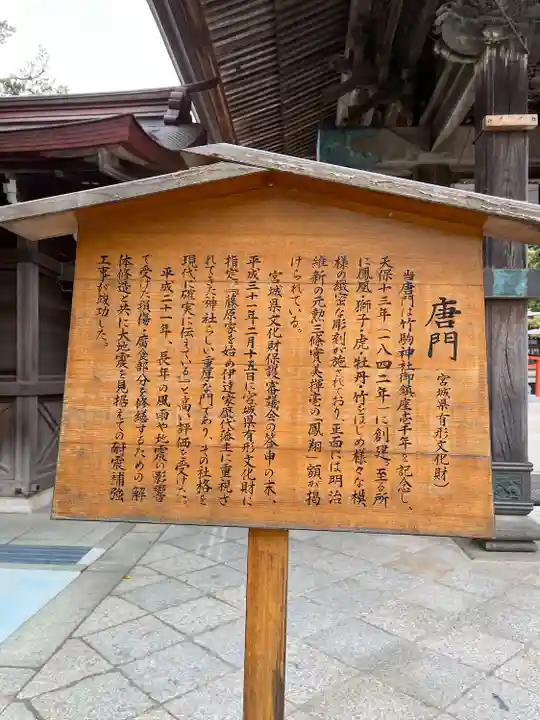 唐門
（宮城県有形文化財）
当唐門は竹駒神社御鎮座壱千年を記念し、
天保十三年（一八四二年）に創建。至る所
に鳳凰・獅子・虎・牡丹・竹をはじめ様々な模
様の緻密な彫刻が施されており、正面には明治
維新の元勲三條實美揮毫の「鳳翔」額が掲
げられている。
宮城県文化財保護審議会の答申の末、
平成三十一年二月十五日に宮城県有形文化財に
指定。「藤原宮を始め伊達家歴代藩主に重視さ
れてきた神社らしい重厚な門であり、その社格を
現代に確実に伝えている」と高い評価を受けた。
平成二十一年、長年の風雨や地震の影響
で受けた損傷・腐食部分を修繕するための解
体修造と共に大地震を見据えての耐震補強
工事が成功した。